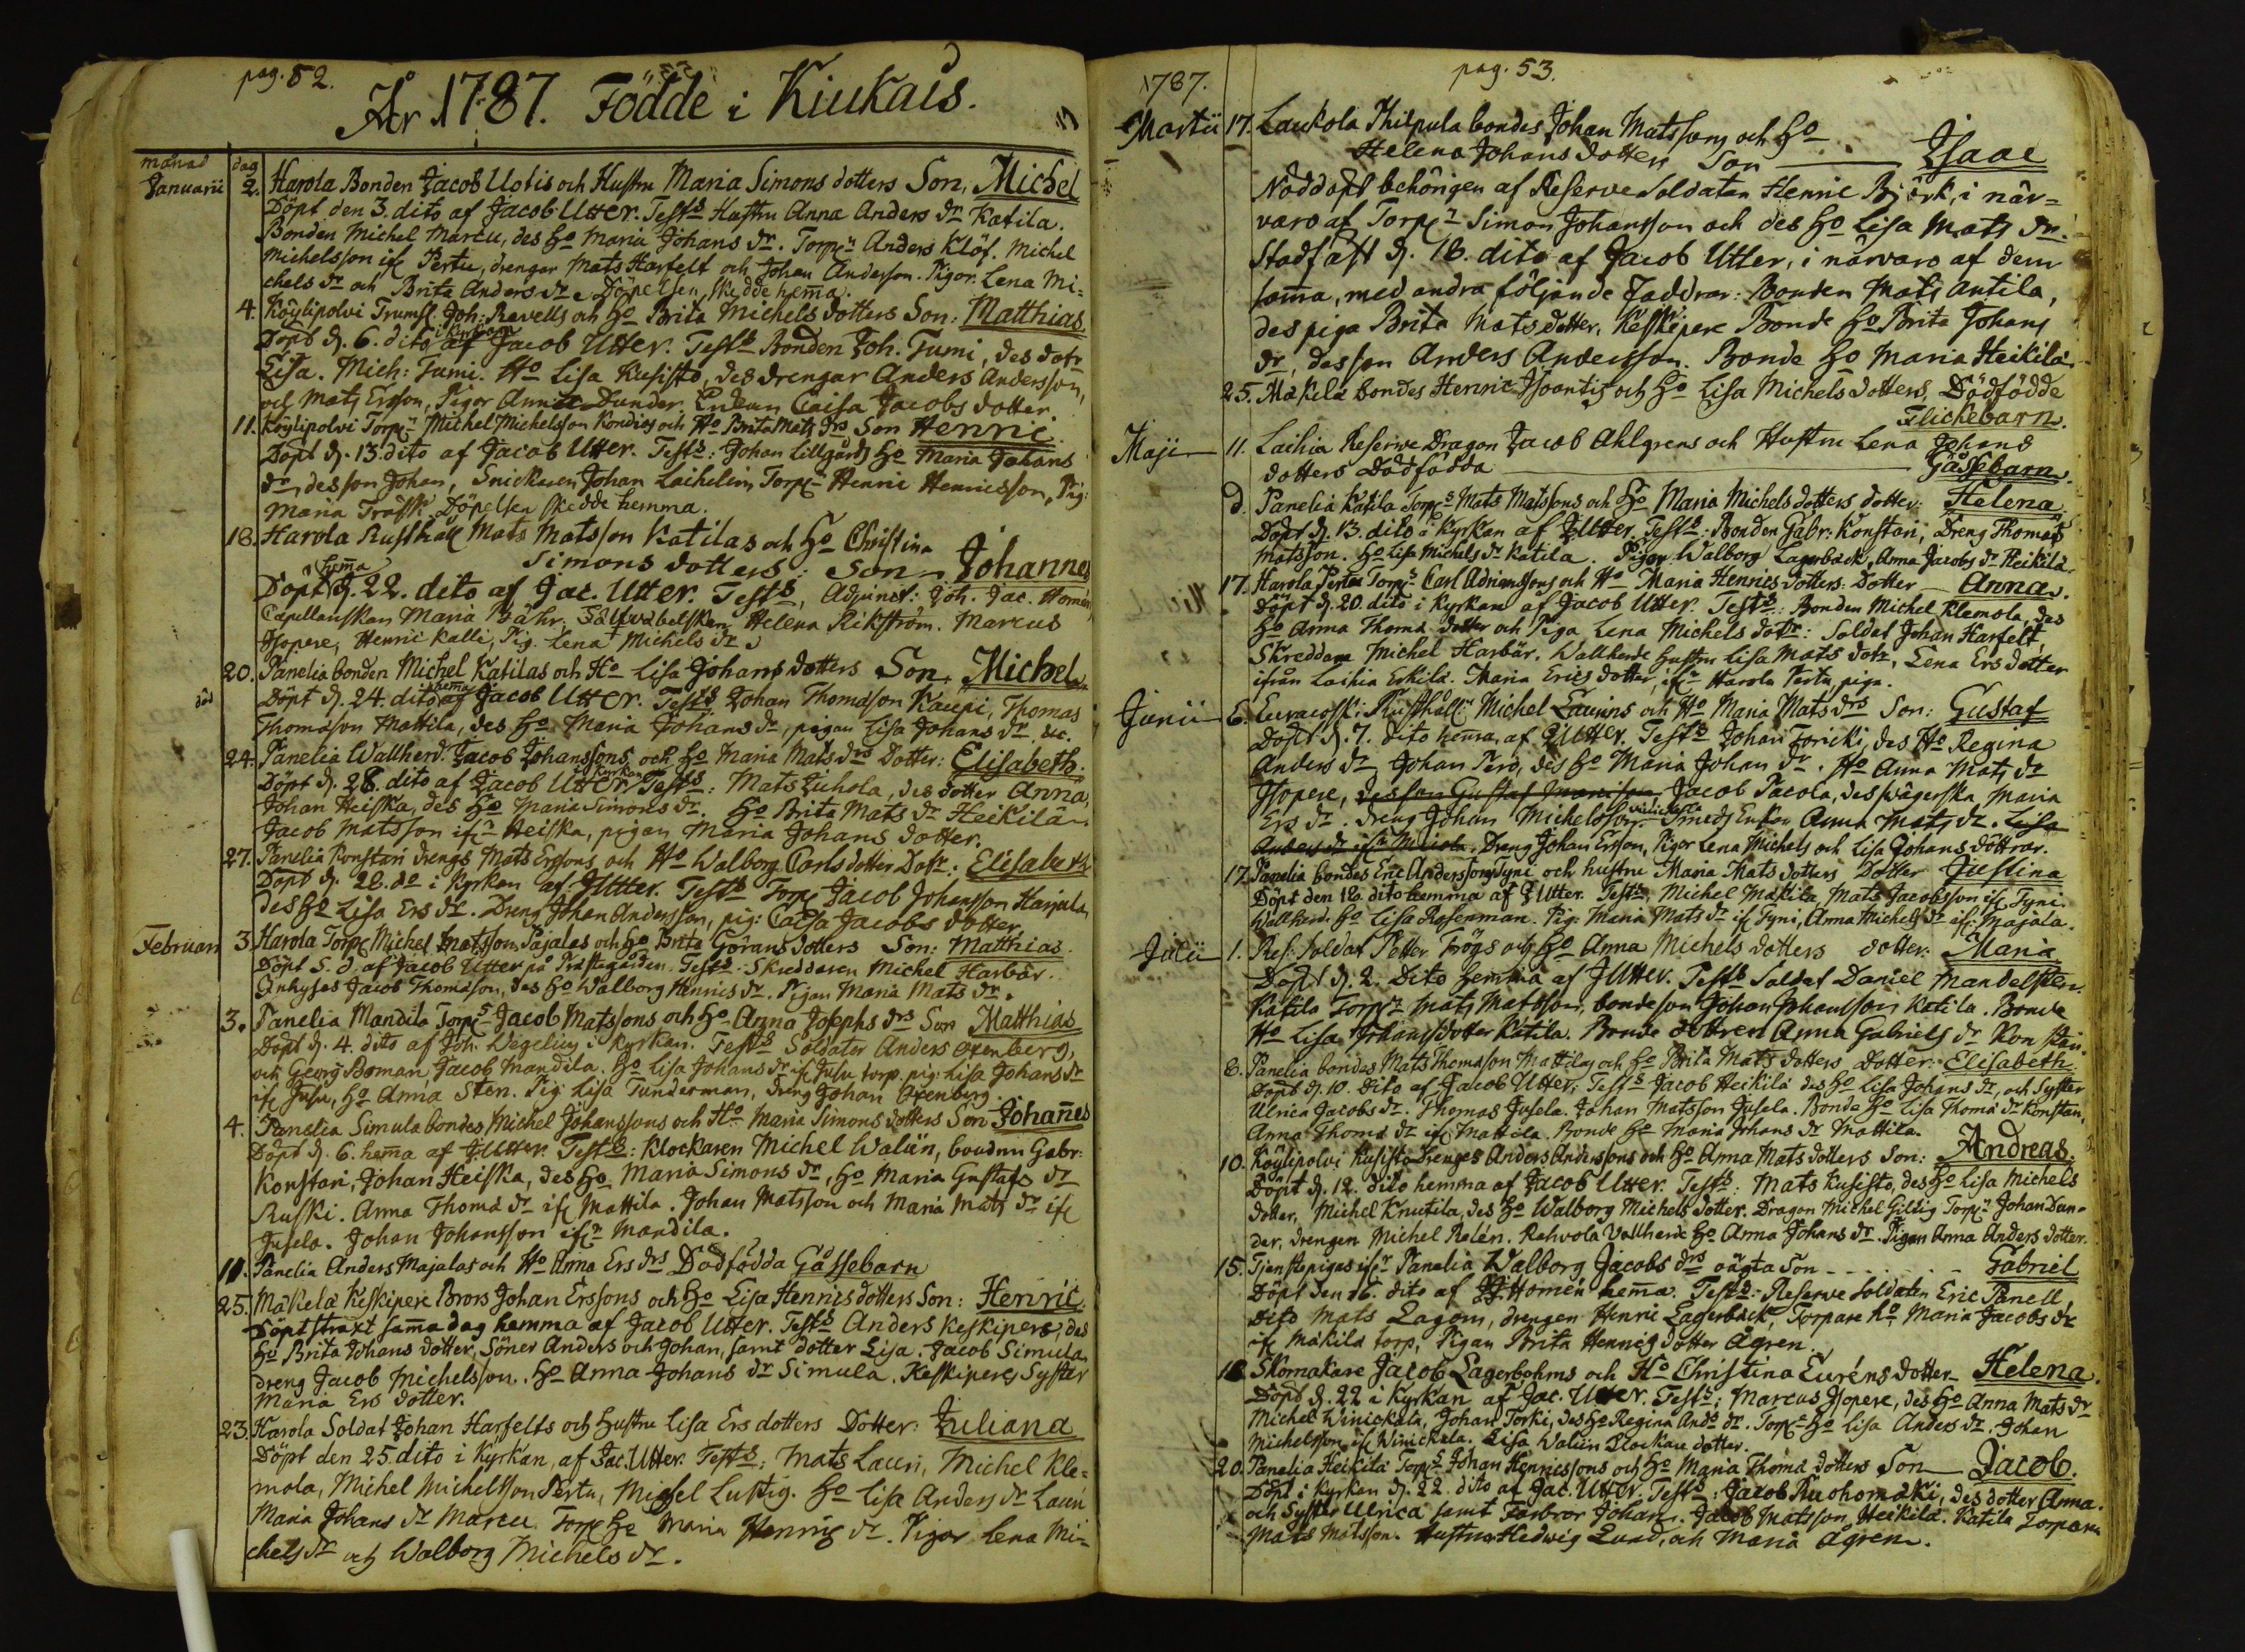 pag. 52.
År 1787. Födde i Kiukais.
månad dag
Januarii 2. Harola Bonden Jacob Uotis och Hustru Maria Simons dotters Son, Michel
Döpt den 3. dito af Jacob Utter. Tests Hustru Anna Anders dr Katila.
Bonden Michel Marcu, des Ho Maria Johans dr. Torpn Anders Klöf. Michel
Michelsson if Pertu, drengar Mats Harfelt och Johan Andersson. Pigor Lena Mi-
chels dr och Brita Anders dr. Döpelsen skedde hema.
4. Köylipolvi Trumsl. Joh: Ravells och Ho Brita Michels dotters Son: Matthias
i kyrkan
Döpt d. 6. dito af Jacob Utter. Tests Bonden Joh. Tumi, des dotr
Lisa. Mich: Tumi. Ho Lisa Kusisto, des drengar Anders Andersson,
och Mats Ersson, Pigor Anna Dunder Enkan Caisa Jacobs dotter.
11. Köylipolvi Torpn Michel Michelsson Kondies och Ho Brita Mats drs Son Henric
Döpt d. 13. dito af Jacob Utter. Tests: Johan Lillgårds Ho Maria Johans
dr, des son Johan, Snickaren Johan Laihelin, Torp Henric Henricsson, Pig:
Maria Träsk. Döpelsen skedde hemma.
18. Harola Rusthåll Mats Matsson Katilas och Ho Christina
Simons dotters: Son Johannes
hema
Döpt d. 22. dito af Jac. Utter. Tests, Adjunct: Joh. Jac. Homén,
Capellanskan Maria Helena Rikström. Marcus
Isopere, Henric Kalli, Pig. Lena Michels dr
20. Panelia bonden Michel Katilas och Ho Lisa Johans dotters Son, Michel
död hema
Döpt d. 24. dito af Jacob Utter. Tests Johan Thomasson Kaupi, Thomas
Thomasson Mattila, des Ho Maria Johans dr, pigan Lisa Johans dr &c.
24. Panelia Wallherd. Jacob Johanssons och Ho Maria Mats drs Dotter: Elisabeth.
kyrkan
Döpt d. 28. dito af Jacob Utter Tests: Mats Zichola, des dotter Anna,
Johan Heiska, des Ho Maria Simons dr. Ho Brita Mats dr Heikilä.
Jacob Matsson ifn Heiska, pigan Maria Johans dotter.
27. Panelia Konstari drengs Mats Erssons, och Ho Walborg Carls dotter Dotr: Elisabeth
Döpt d. 28. do i Kyrkan af JUtter. Tests Torp Jacob Johansson Harjula,
des Ho Lisa Ers dr. Dreng Johan Andersson, pig: Caisa Jacobs dotter.
Februari 3. Harola Torp Michel Matsson Pajalas och Ho Brita Görans dotters Son: Matthias
Döpt 5. d. af Jacob Utter på Prästegården. Tests: Skreddaren Michel Harbär.
Inhyses Jacob Thomasson, des Ho Walborg Henrics dr. Pigan Maria Mats dr.
3. Panelia Mandila Torps Jacob Matssons och Ho Anna Josephs drs Son Matthias
Döpt d. 4. dito af Joh. Wegelius i Kyrkan. Tests Soldater Anders Oxenberg,
och Georg Boman, Jacob Mandila. Ho Lisa Johans dr if Jusu torp. pig: Lisa Johans dr
if Jusu, Ho Anna Sten. Pig Lisa Tunderman, dreng Johan Oxenberg.
4. Panelia Simula bondes Michel Johanssons och Ho Maria Simons dotters Son Johañes
Döpt d. 6. hema af JUtter. Tests: Klockaren Michel Walin, bonden Gabr:
Konstari, Johan Heiska, des Ho Maria Simons dr, Ho Maria Gustafs dr
Ruski. Anna Thoma dr if Mattila. Johan Matsson och Maria Mats dr if
Jusela. Johan Johansson ifn Mandila.
11. Panelia Anders Majalas och Ho Anna Ers drs Dödfödda Gåssebarn
25. Mäkelä Keskipere Brors Johan Erssons och Ho Lisa Henrics dotters Son: Henric.
Döpt straxt sama dag hemma af Jacob Utter. Tests Anders Keskipere, des
Ho Brita Johans dotter, Söner Anders och Johan, samt dotter Lisa. Jacob Simula
dreng Jacob Michelsson. Ho Anna Johans dr Simula. Keskiperes Syster
Maria Ers dotter.
23. Harola Soldat Johan Harfelts och Hustru Lisa Ers dotters Dotter: Juliana
Döpt den 25. dito i Kyrkan, af Jac. Utter. Tests: Mats Lauri, Michel Kle-
mola, Michel Michelsson Pertu, Michel Lustig. Ho Lisa Anders dr Lauri
Maria Johans dr Marcu. Torp Ho Maria Henrics dr. Pigor Lena Mi-
chels dr och Walborg Michels dr.
pag. 53.
1787.
Martii 17. Laukola Philpula bondes Johan Matssons och Ho
Helena Johans dotters Son Isaac
Nöddöpt behörigen af Reserve Soldaten Henric Björk, i när-
varo af Torpn Simon Johansson och des Ho Lisa Mats dr.
Stadfäst d. 18. dito af Jacob Utter, i närvaro af dem
sama, med andra följande Faddrar: Bonden Mats Antila,
des piga Brita Mats dotter, Keskipere Bonde Ho Brita Johans
dr, des son Anders Andersson. Bonde Ho Maria Heikilä.
25. Mäkilä bondes Henric Isoantis och Ho Lisa Michels dotters, Dödfödde
Flickebarn.
Maji 11. Laihia Reserve Dragon Jacob Ahlgrens och Hustru Lena Johans
dotters Dödfödda Gåssebarn.
d. Panelia Katila Torps Mats Matssons och Ho Maria Michels dotters dotter: Helena.
Döpt d. 13. dito i Kyrkan af JUtter. Tests: Bonden Gabr: Konstari, Dreng Thomas
Matsson. Ho Lisa Michels dr Katila. Pigor Walborg Lagerbäck, Anna Jacobs dr Heikilä.
17. Harola Pertu Torps Carl Adrianssons och Ho Maria Henrics dotters: Dotter Anna.
Döpt d. 20. dito i Kyrkan af Jacob Utter. Tests: Bonden Michel Klemola, des
Ho Anna Thoma dotter och Piga Lena Michels dotr: Soldat Johan Harfelt,
Skreddare Michel Harbär. Wallherde Hustru Lisa Mats dotr, Lena Ers dotter
ifrån Laihia Eskilä. Maria Erics dotter, ifn Harola Pertu piga.
Junii 6. Euracoski Rusthålln Michel Laurins och Ho Maria Mats drs Son: Gustaf
Döpt d. 7. dito hema, af JUtter. Tests Johan Toricki, des Ho Regina
Anders dr, Johan Pero, des Ho Maria Johan dr. Ho Anna Mats dr
Isopere, Jacob Pacola, des swägerska Maria
Ers dr. Dreng Johan Michelsson. Smeds Enkan Anna Mats dr. Lisa
Dreng Johan Ersson, Pigor Lena Michels och Lisa Johans döttrar.
17. Panelia bondes Eric Anderssons Tyni och hustru Maria Mats dotters Dotter Justina
Döpt den 18. dito hemma af JUtter. Tests, Michel Mäkilä, Mats Jacobsson if Tyni.
Wallherd. Ho Lisa Rosenman. Pig: Maria Mats dr if Tyni, Anna Michels dr if: Majala.
Julii 1. Res: Soldat Petter Frögs och Ho Anna Michels dotters dotter: Maria
Döpt d. 2. Dito hemma af JUtter. Tests Soldat Daniel Mandelsten.
Katila Torpn Mats Mattsson, bondeson Johan Johansson Katila. Bonde
Ho Lisa Johansdotter Katila. Bonde dottren Anna Gabriels dr Konstari.
8. Panelia bondes Mats Thomasson Mattilas och Ho Brita Mats dotters Dotter: Elisabeth.
Döpt d. 10. Dito af Jacob Utter: Tests Jacob Heikilä des Ho Lisa Johans dr, och Syster
Ulrica Jacobs dr. Thomas Jusela. Johan Matsson Jusela. Bonde Ho Lisa Thoma dr Konstari,
Anna Thoma dr if Mattila. Bonde Ho Maria Johans dr Mattila.
10. Köylipolvi Kusisto Drenges Anders Anderssons och Ho Anna Mats dotters Son: Andreas.
Döpt d. 12. dito hemma af Jacob Utter. Tests: Mats Kusisto, des Ho Lisa Michels
dotter, Michel Knutila, des Ho Walborg Michels dotter. Dragon Michel Gillig Torpn Johan Dun-
der, drengen Michel Relén. Rahvola Vallherde Ho Anna Johans dr. Pigan Anna Anders dotter.
15. Tjenstepigas ifn Panelia Walborg Jacobs drs oägta Son Gabriel
Döpt den 16. dito af Homén hema. Tests: Reserve Soldaten Eric Panell
Dito Mats Lagom, drengen Henric Lagerbäck, Torpare Ho Maria Jacobs dr
if Mäkilä torp, Pigan Brita Henrics dotter Ågren.
18. Skomakare Jacob Lagerbohms och Ho Christina Euréns dotter Helena.
Döpt d. 22 i Kyrkan af Jac. Utter. Tests: Marcus Isopere, des Ho Anna Mats dr
Michel Winickala, Johan Torki, des Ho Regina Ands dr. Torp Ho Lisa Anders dr. Johan
Michelsson if Winickala. Lisa Walin Klockare dotter.
20. Panelia Heikilä Torps Johan Henricssons och Ho Maria Thoma dotters Son Jacob.
Döpt i Kyrkan d. 22. dito af Jac. Utter. Tests: Jacob Ruohomäki, des dotter Anna.
och Syster Ulrica samt Farbror Johan. Jacob Matsson Heikilä. Katila Torparn
Mats Matsson. Hustru Hedwig Lund, och Maria Ågren.